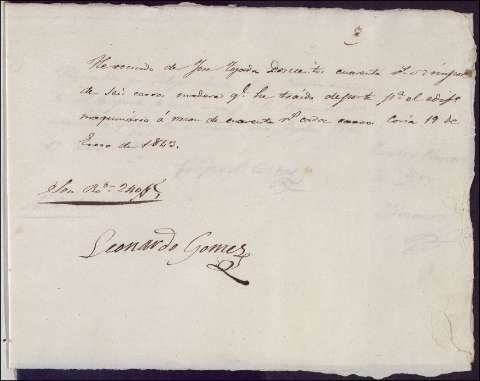 He recivido de José Tejada Doscientos cuarenta rs. vn. importe
de seis carros madera qe. he traido de porte pa. el edificio
maquinario á razon de cuarenta rs. cada carro. Coria 19 de
Enero de 1843.
Son Rs. 240
Leonardo Gomez